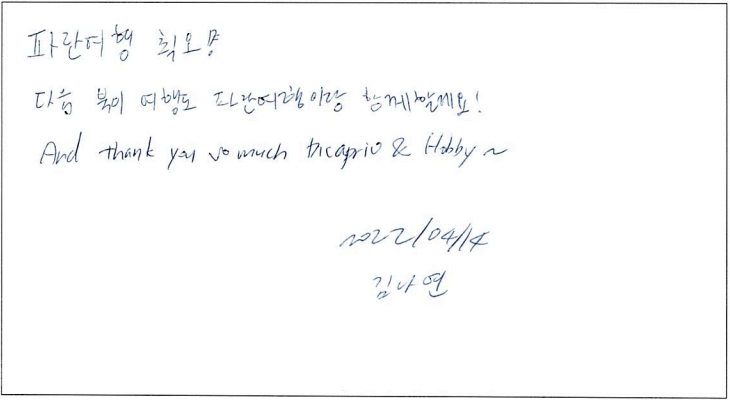 파란여행 최오명
다음 북미 여행도 파란여행이랑 함께할게요!
And thank you so much Dicaprio & Hobby ~
2022/04/14
김나연